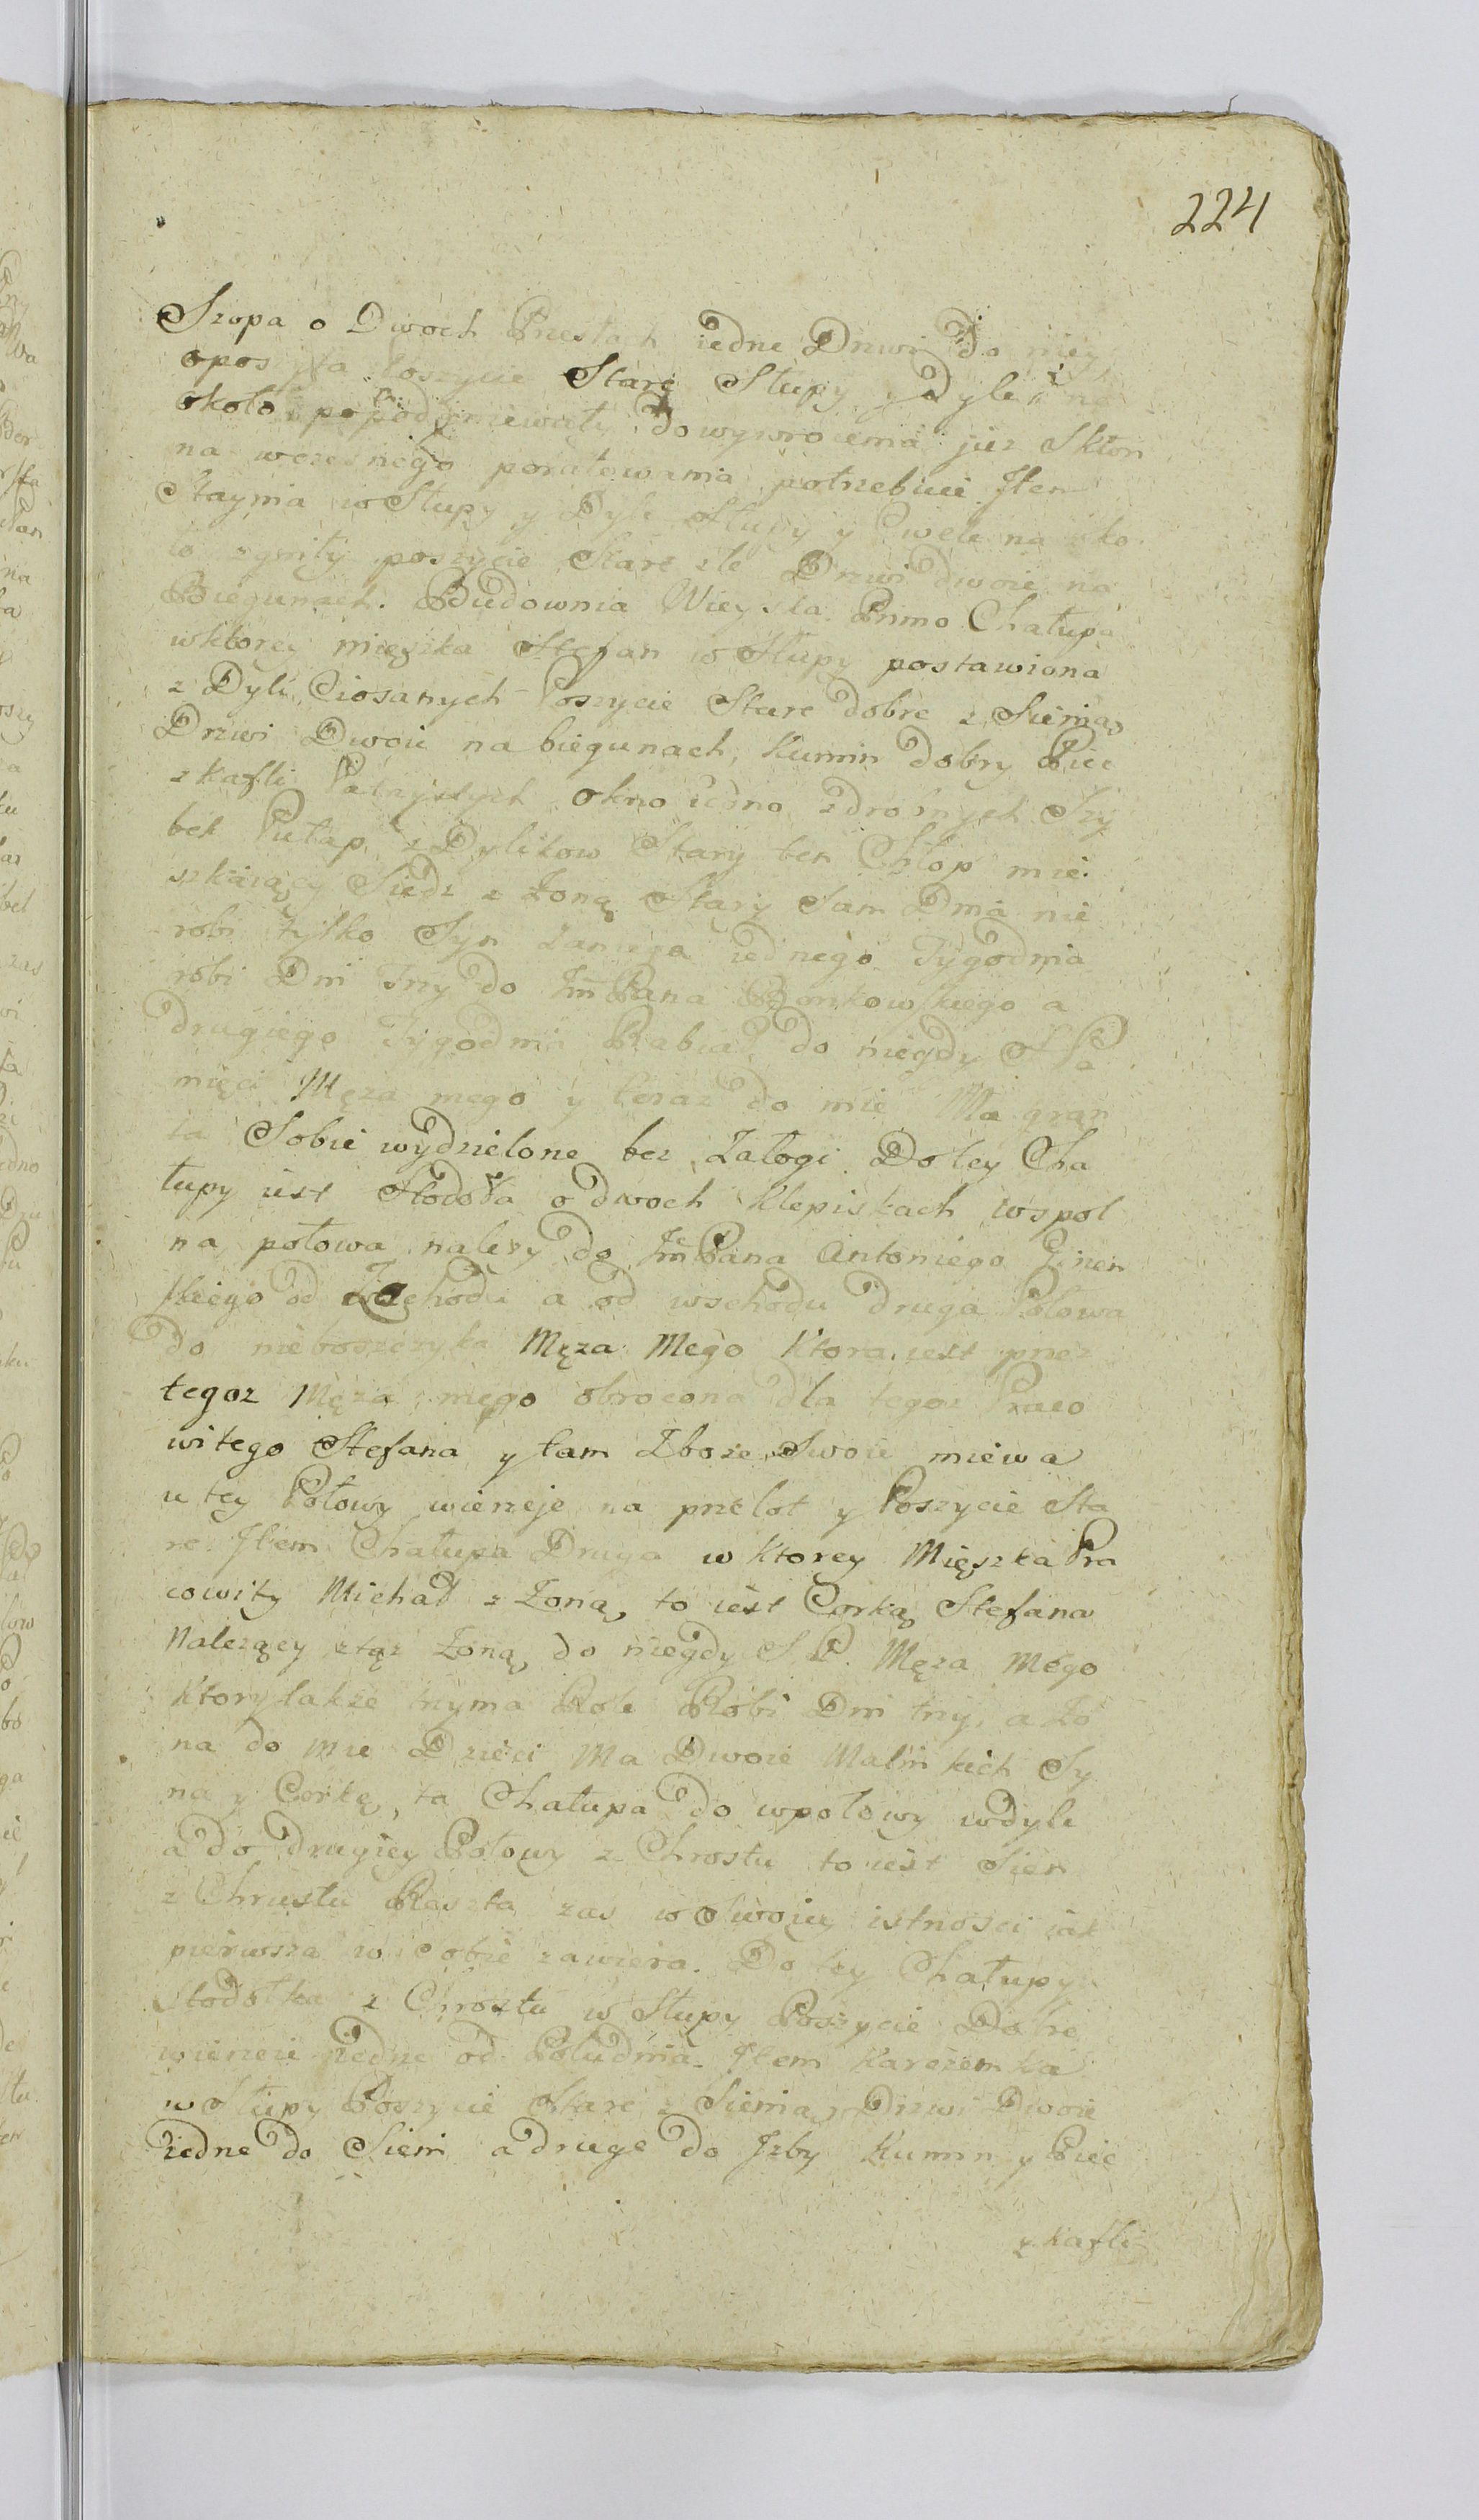 224
Szopa o Dwoch Przestach iedne Drzwi do niey
opos Poszycie Stare Słupy y Dyle na
około popodgniewały do wywrocenia juz Skłon
na wczesnego poratowania potrzebuie Item
Staynia w Słupy y Dyle Słupy y Cwele na oko
ło zgniły poszycie Stare złe Drzwi dwoie na
Biegunach. Budownia Wieyska Primo Chałupa
wktorey mięszka Stefan w Słupy postawiona
z Dyli Ciosanych Poszycie Stare dobre z Sienią
Drzwi Dwoie na biegunach, Kumin dobry Piec
z kafli okno iedno zdrobnych Szy
bek Pułap z Dylikow Stary ten Chłop mie
szkaiący Siedz z Zoną Stary Sam Dnia nie
robi tylko Syn zaniego iednego Tygodnia
robi Dni Trzy do Jm Pana Bonkowskiego a
drugiego Tygodnia Rabiał do niegdy S Pa
męci Męza mego y teraz do mie Ma grun
ta Sobie wydzielone bez Załogi Do tey Cha
łupy iest Stodoła o dwoch Klepiskach wspol
na połowa nalezy do Jm Pana Antoniego
skiego od Zachodu a od wschodu druga Połowa
do nieboszczyka Męza Mego Ktora iest przez
tegoz Męza mego obrocona dla tegoz Praco
witego Stefana y tam Zboze Swoie miewa
u tey Połowy wierzeje na przelot y Poszycie Sta
re. Item Chałupa Druga w Ktorey Mięszka Pra
cowity Michał z Zoną to iest Corką Stefana
Nalezący ztąz Zoną do niegdy S P. Męza Mego
Ktory takze trzyma Role Robi Dni trzy, a Zo
na do mie Dzieci Ma Dwoie Malinkich Sy
na y Corkę, ta Chałupa do wpołowy wdyle
a do drugiey Połowy z Chrostu to iest Sien
z Chrustu Reszta zas w Swoiey istnosci iak
pierwsza w Sobie zawiera. Do tey Chałupy
Stodołka z Chrostu w Słupy Poszycie Dobre
wierzeie iedne od Południa. Item Karczemka
w Słupy Poszycie Stare z Sienią Drzwi Dwoie
iedne do Sieni a druge do Izby Kumin y Piec
z kafli